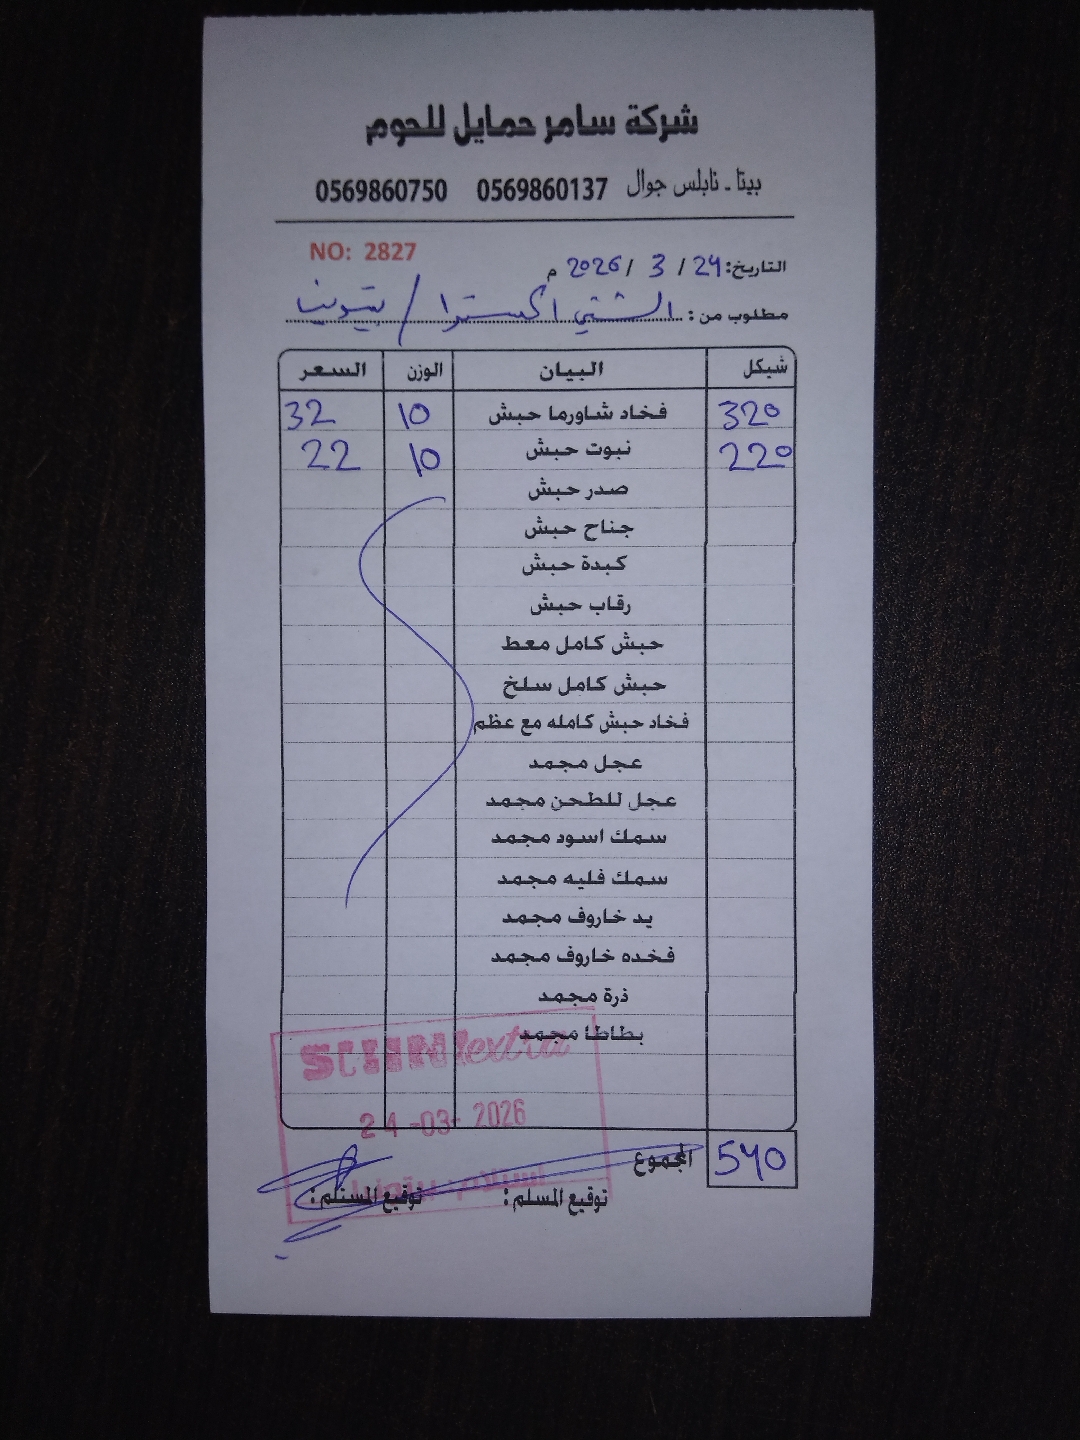 شركة سامر حمايل للحوم
بيتا - نابلس جوال 0569860137 0569860750
NO: 2827
التاريخ: 24 / 3 / 2026 م
مطلوب من: الشني اكسترا / بيتونيا
شيكل البيان الوزن السعر
320 فخاد شاورما حبش 10 32
220 نبوت حبش 10 22
صدر حبش
جناح حبش
كبدة حبش
رقاب حبش
حبش كامل معط
حبش كامل سلخ
فخاد حبش كامله مع عظم
عجل مجمد
عجل للطحن مجمد
سمك اسود مجمد
سمك فليه مجمد
يد خاروف مجمد
فخده خاروف مجمد
ذرة مجمد
بطاطا مجمد
extra
24-03-2026
المجموع 540
استلام
توقيع المسلم : توقيع المستلم :